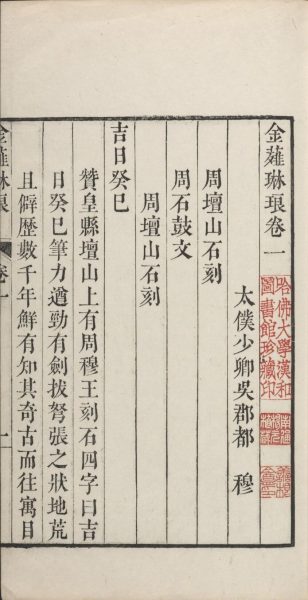 金薤琳琅卷一
太僕少卿吳郡都 穆
周壇山石刻
周石鼓文
周壇山石刻
吉日癸巳
贊皇縣壇山上有周穆王刻石四字曰吉
日癸巳筆力遒勁有劍拔弩張之狀地荒
且僻歷數千年鮮有知其奇古而往寓目
金薤琳琅
卷一
一
哈佛大學漢和
圖書館珍藏印